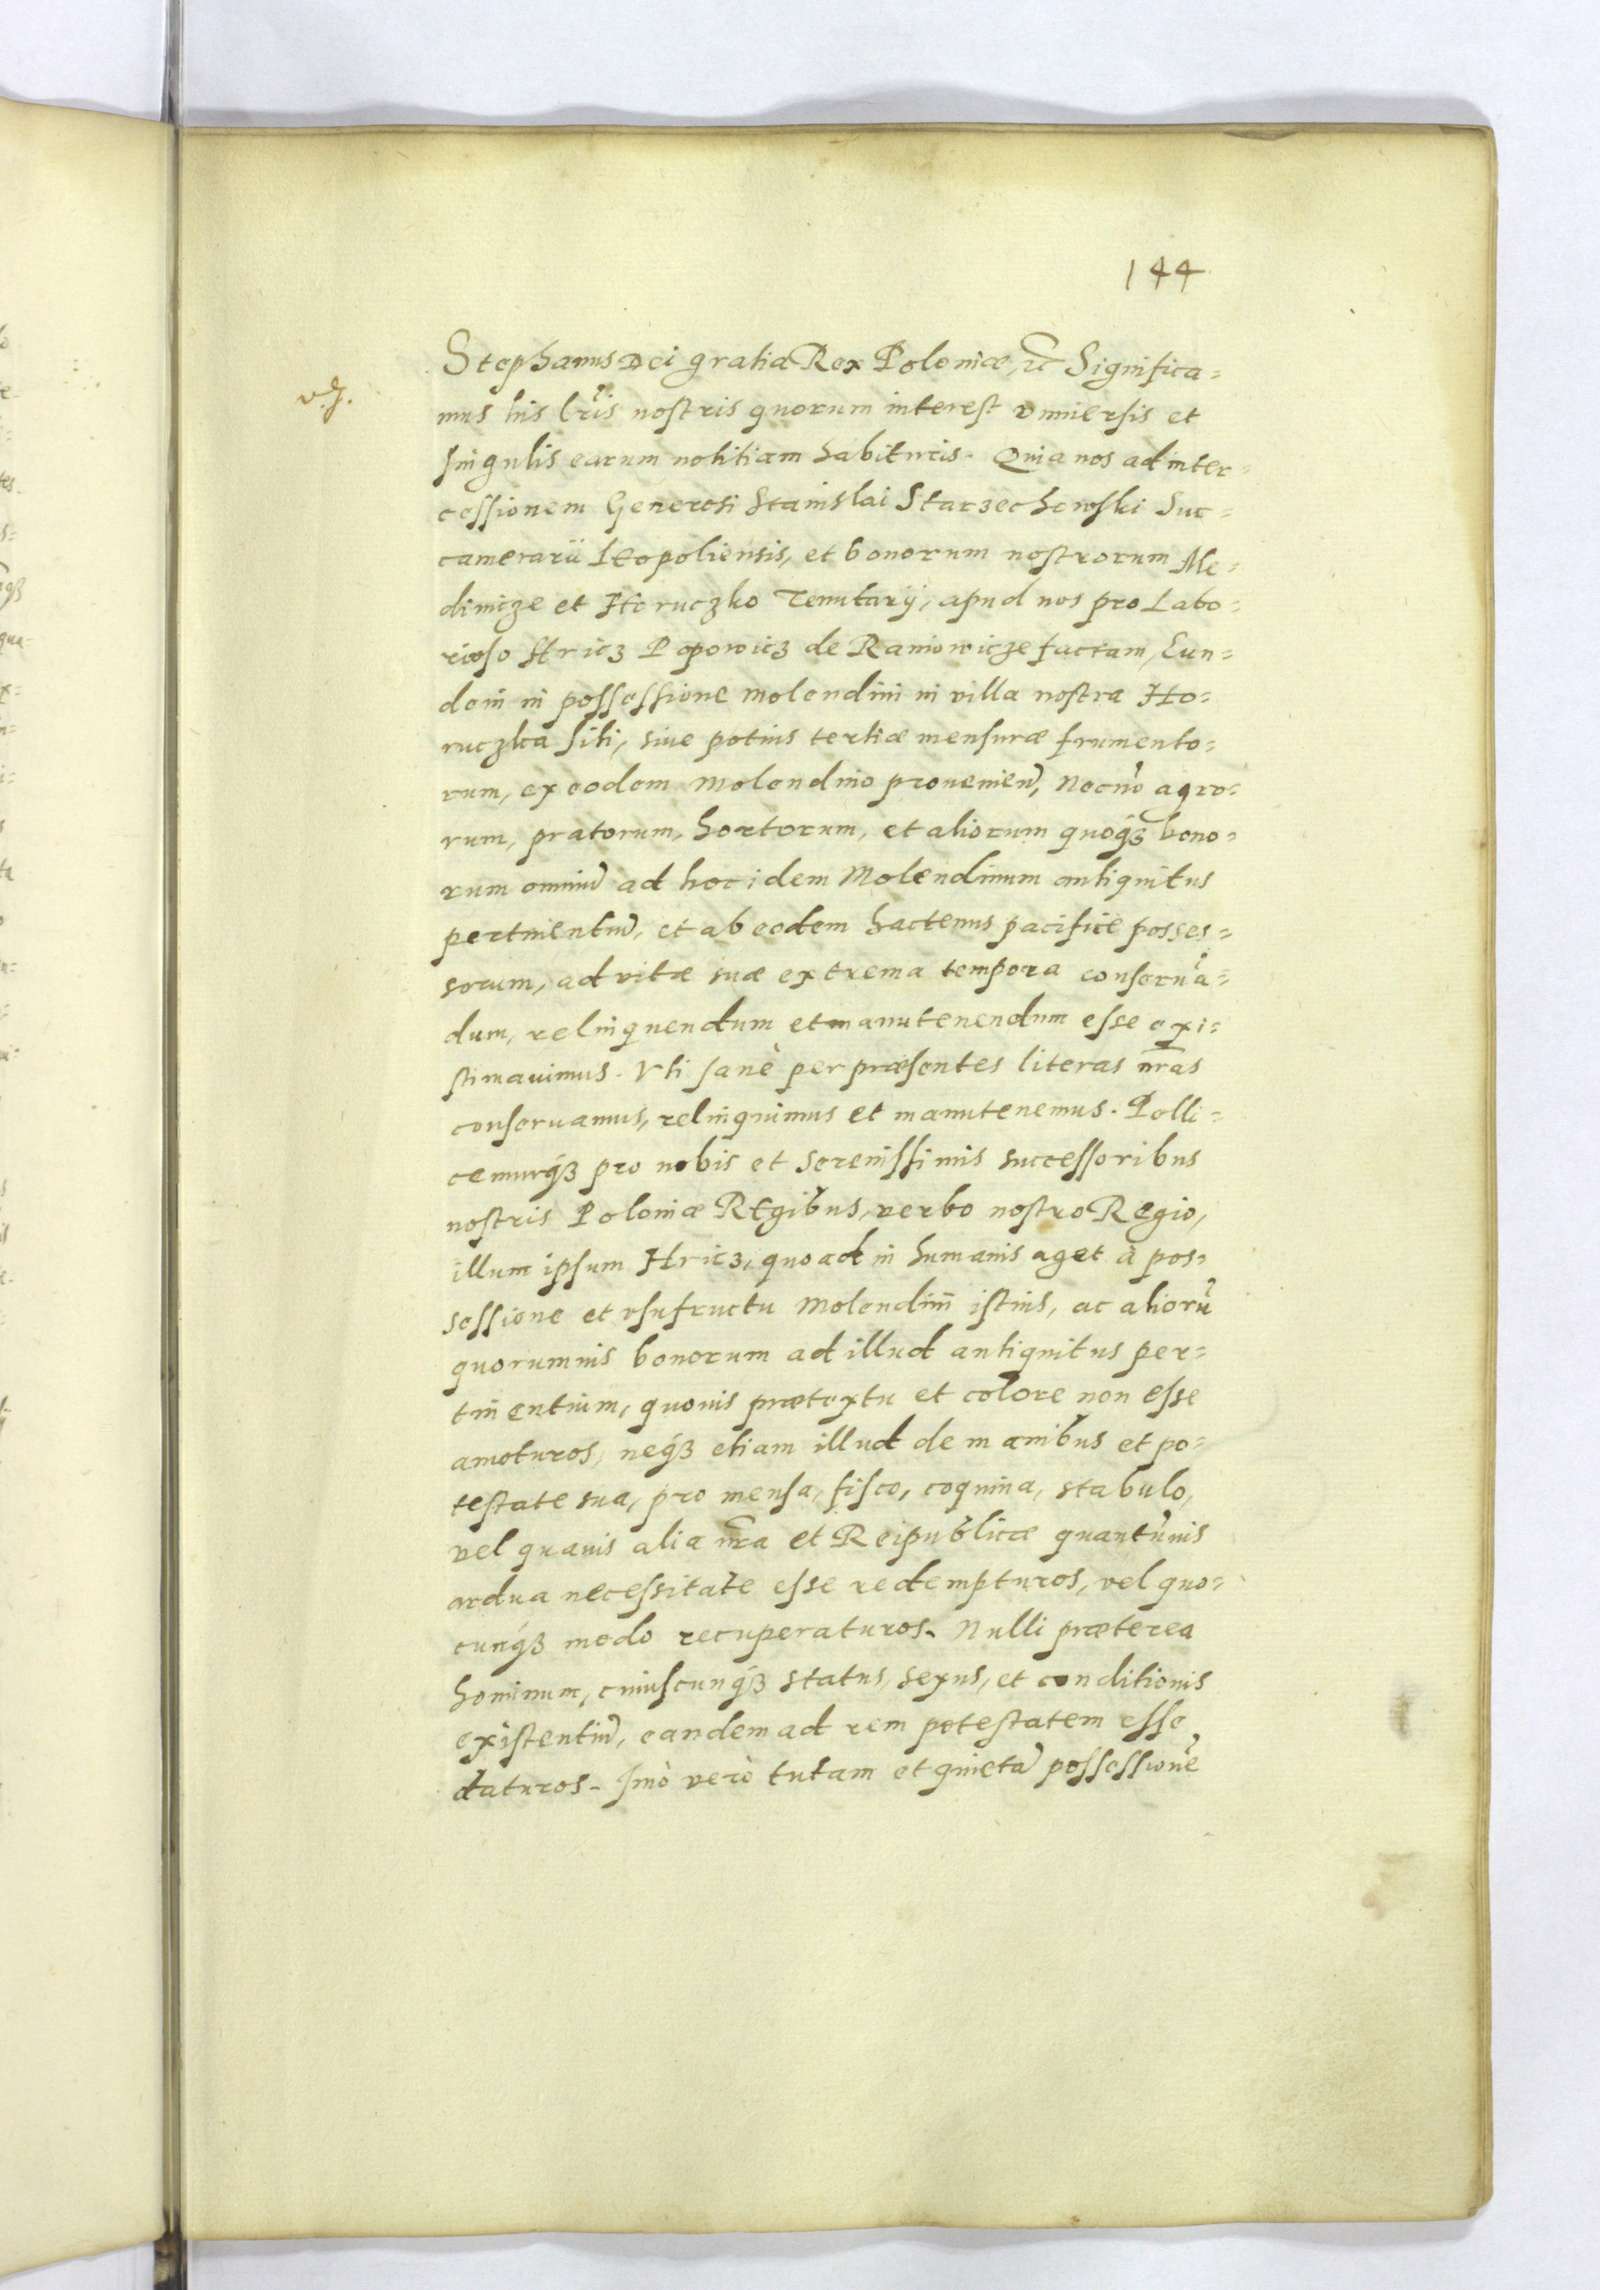 144
Stephanus Dei gratia Rex Poloniæ, etc Significa=
v.J.
mus his lr̃is nostris quorum interest vniuersis et
singulis earum notitiam habituris. Quia nos ad inter=
cessionem Generosi Stanislai Starzechowski Suc=
camerarii Leopoliensis, et bonorum nostrorum Me=
dinicze et Horuczko Tenutarij, apud nos pro Labo=
rioso Hricz Popowicz de Raniowicze factam, Eun=
dem in possessione molendini in villa nostra Ho=
ruczka siti, siue potius tertiæ mensuræ frumento=
rum, ex eodem Molendino prouenieñ, Necnõ agro=
rum, pratorum, hortorum, et aliorum quoq́ꝫ bono=
rum omniũ ad hoc idem Molendinum antiquitus
pertinentiũ, et ab eodem hactenus pacifice posses=
sorum, ad vitæ suæ extrema tempora conseruã=
dum, relinquendum et manutenendum esse exi=
stimauimus. Vti sanè per præsentes literas nr̃as
conseruamus, relinquimus et manutenemus. Polli=
cemurq́ꝫ pro nobis et Serenissimis successoribus
nostris Poloniæ Regibus, verbo nostro Regio,
illum ipsum Hricz, quoad in humanis aget à pos=
sessione et vsufructu Molendini istius, ac aliorũ
quorumuis bonorum ad illud antiquitus per=
tinentium, quouis prætextu et colore non esse
amoturos, neq́ꝫ etiam illud de manibus et po=
testate sua, pro mensa, fisco, coquina, stabulo,
vel quauis alia nr̃a et Reipublicæ quantũuis
ardua necessitate esse redempturos, vel quo=
cunq́ꝫ modo recuperaturos. Nulli præterea
hominum, cuiuscunq́ꝫ status, sexus, et conditionis
existentiũ, eandem ad rem potestatem esse
daturos. Imò verò tutam et quietã possessionẽ